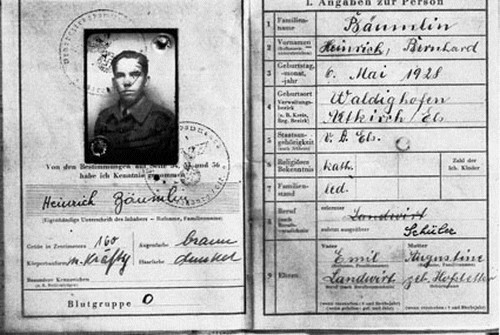 Von den Bestimmungen auf Seite 54, 55 und 56
habe ich Kenntnis genommen
Heinrich Bäumlin
(Eigenhändige Unterschrift des Inhabers — Rufname, Familienname)
Größe in Zentimetern 160 Augenfarbe braun
Körperstatur m. Kräftig Haarfarbe dunkel
Besondere Kennzeichen
Blutgruppe O
I. Angaben zur Person
1 Familien-
name Bäumlin
2 Vornamen
Heinrich, Bernhard
3 Geburtstag,
-monat,
-jahr 6. Mai 1928
4 Geburtsort
Verwaltungs-
bezirk
(z. B. Kreis,
Reg. Bezirk) Waldighofen
Altkirch/Els
5 Staatsan-
gehörigkeit
6 Religiöses
Bekenntnis kath. Zahl der
Kinder
7 Familien-
stand led.
8 Beruf erlernter Landwirt
zuletzt ausgeübter Schüler
9 Eltern
Vater Mutter
Emil Augustine
Landwirt geb.